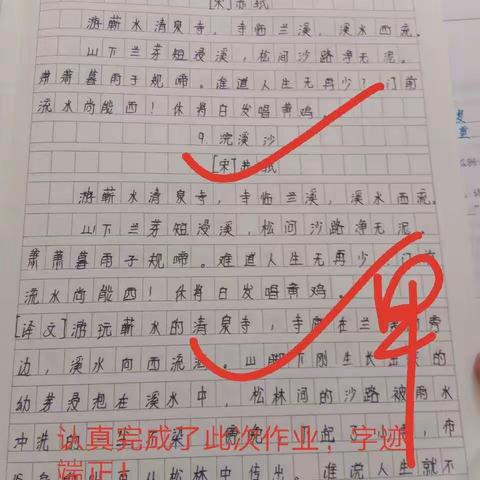 [宋]苏轼
游蕲水清泉寺，寺临兰溪，溪水西流。
山下兰芽短浸溪，松间沙路净无泥。
萧萧暮雨子规啼。谁道人生无再少？门前
流水尚能西！休将白发唱黄鸡。
9.浣溪沙
[宋]苏轼
游蕲水清泉寺，寺临兰溪，溪水西流。
山下兰芽短浸溪，松间沙路净无泥。
萧萧暮雨子规啼。难道人生无再少
流水尚能西！休将白发唱黄鸡。
[译文]游玩蕲水的清泉寺，寺庙在兰
边，溪水向西流淌。山脚下刚生长出来的
幼芽浸想在溪水中，松林间的沙路被雨水
冲洗的
认真完成了此次作业，字迹
端正！
松林中传出。谁说人生就不